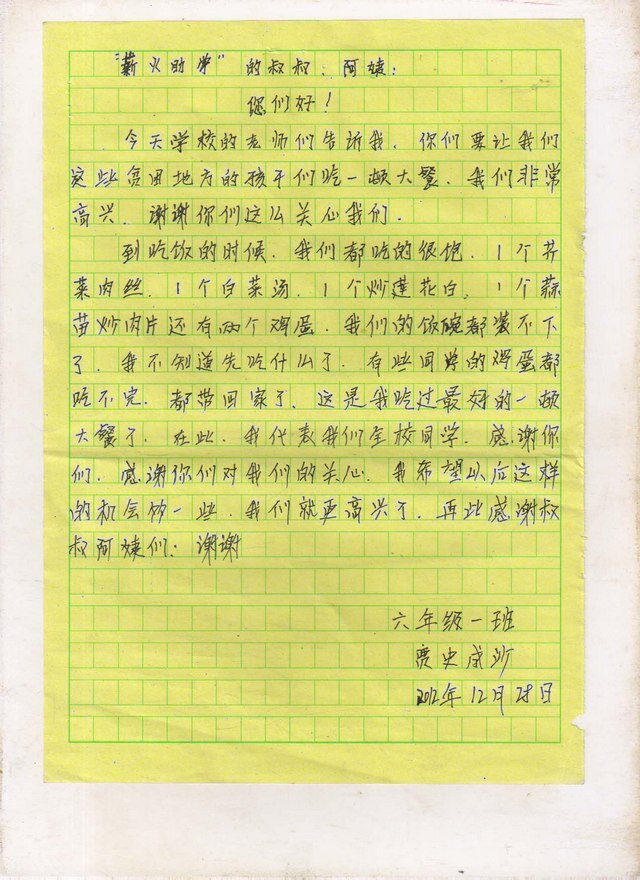 “薪火助学”的叔叔、阿姨：
您们好！
今天学校的老师们告诉我．你们要让我们
这些贫困地方的孩子们吃一顿大餐．我们非常
高兴．谢谢你们这么关心我们．
到吃饭的时候．我们都吃的很饱．1个芥
菜肉丝．1个白菜汤．1个炒莲花白．1个蒜
苗炒肉片还有两个鸡蛋．我们的饭碗都装不下
了．我不知道先吃什么了．有些同学的鸡蛋都
吃不完．都带回家了．这是我吃过最好的一顿
大餐了．在此．我代表我们全校同学．感谢你
们．感谢你们对我们的关心．我希望以后这样
的机会多一些．我们就更高兴了．再此感谢叔
叔阿姨们：谢谢
六年级一班
贾史成
2012年12月28日